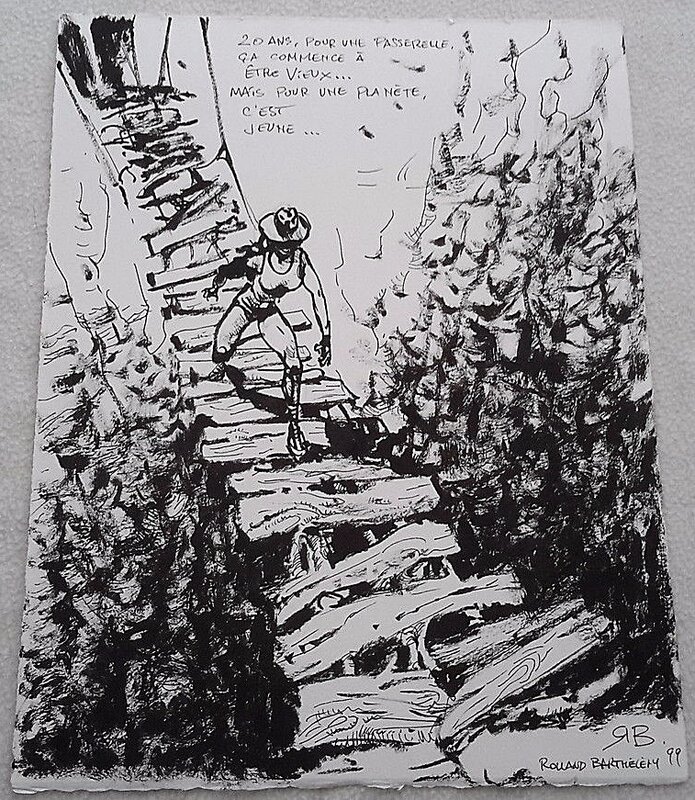 20 ANS, POUR UNE PASSERELLE,
ÇA COMMENCE À
ÊTRE VIEUX...
MAIS POUR UNE PLANÈTE,
C'EST
JEUNE...
RB.
ROLLAND BARTHÉLEMY 99